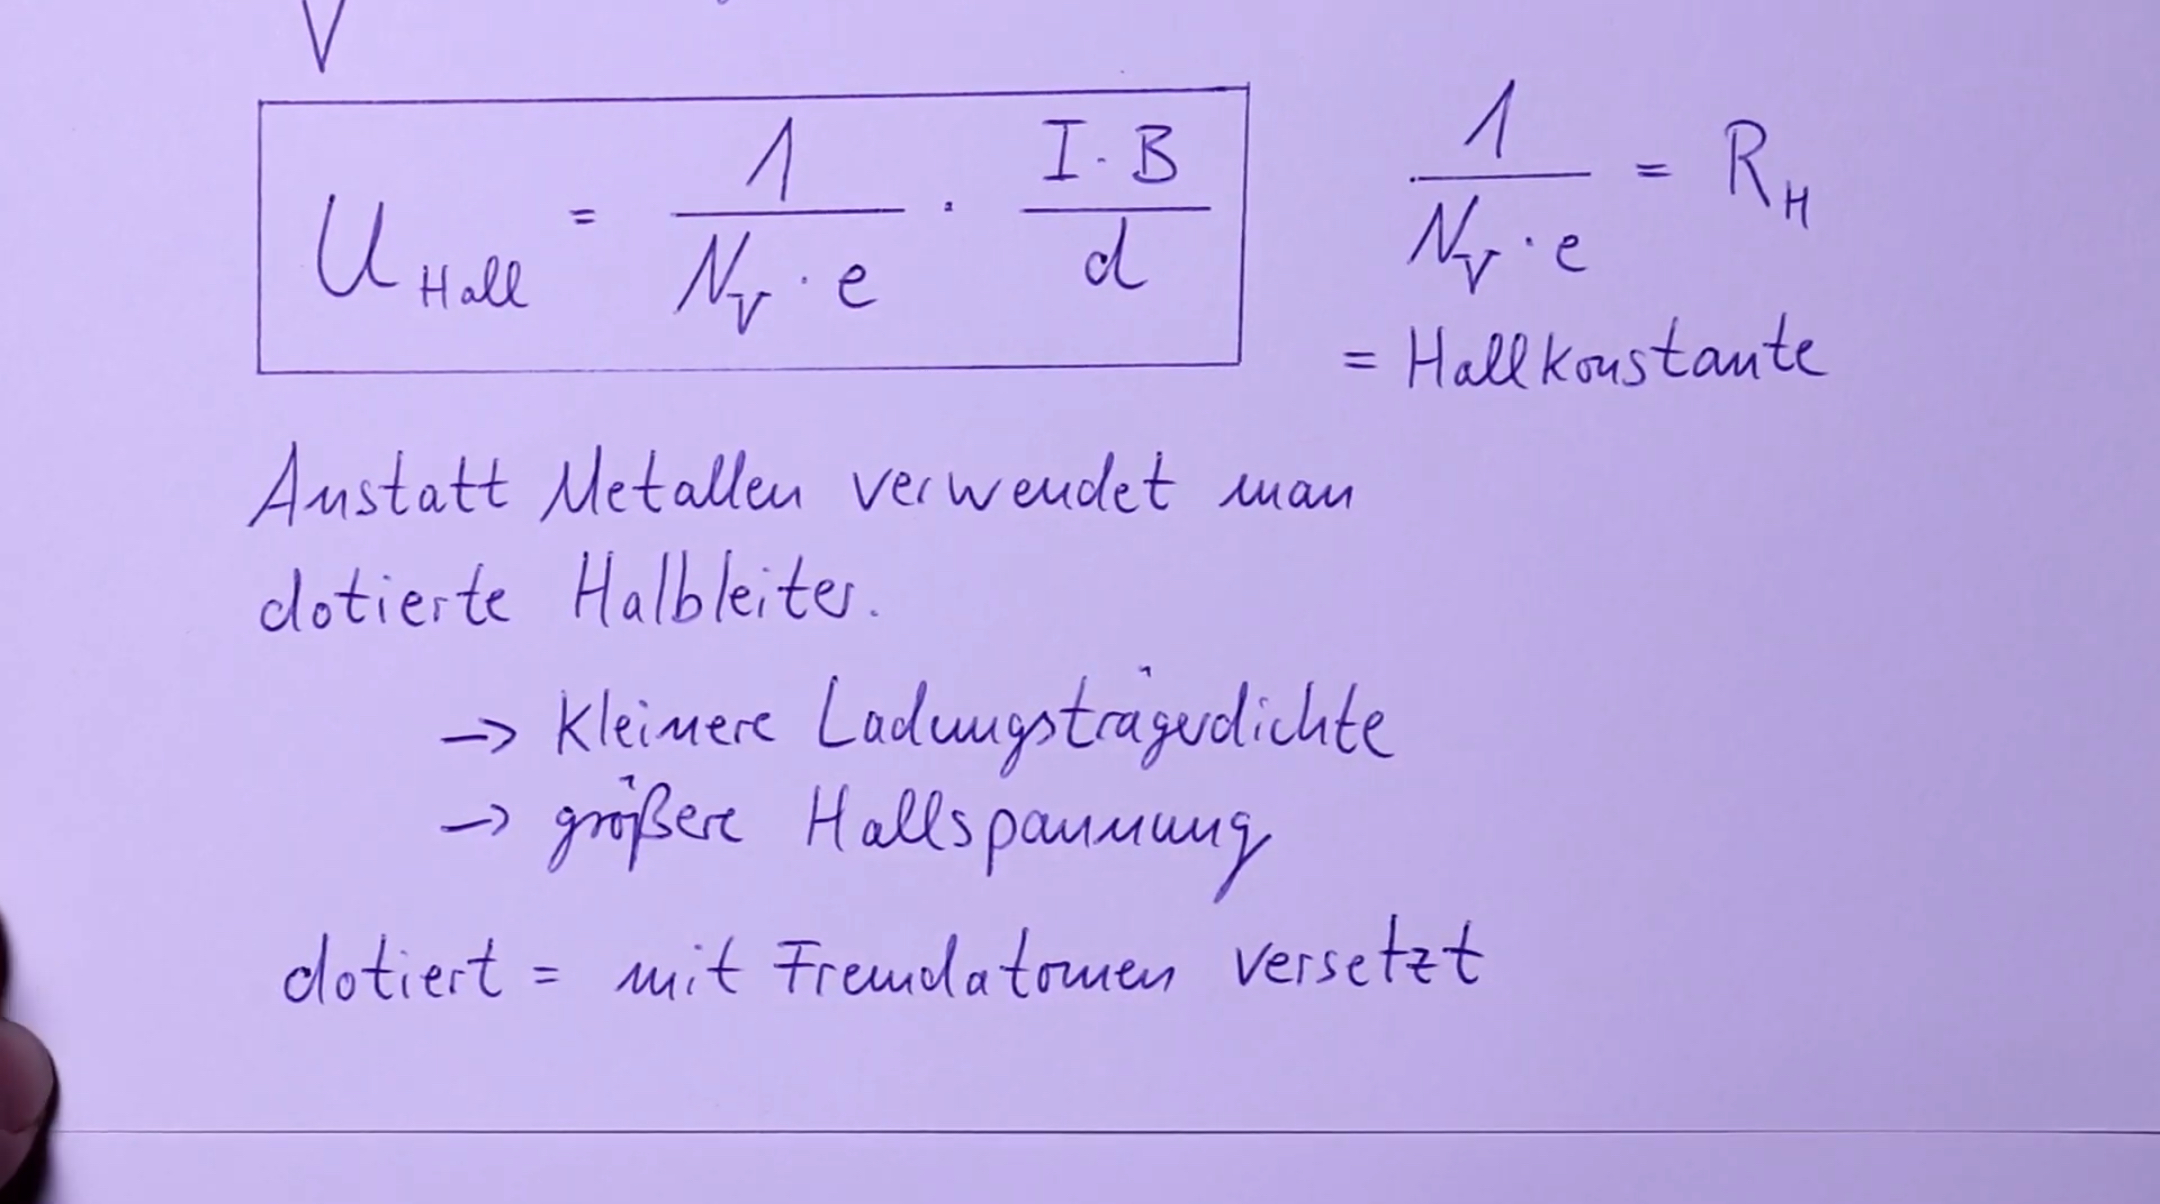 V
U_Hall = 1/(N_V · e) · (I · B)/d
1/(N_V · e) = R_H
= Hallkonstante
Anstatt Metallen verwendet man
dotierte Halbleiter.
→ Kleinere Ladungsträgerdichte
→ größere Hallspannung
dotiert = mit Fremdatomen versetzt